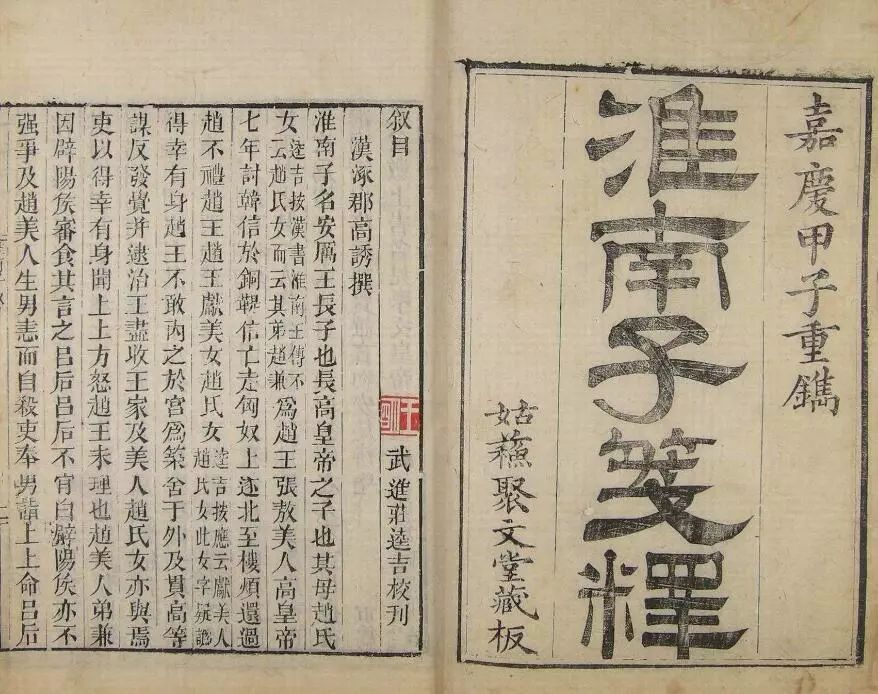 嘉慶甲子重鐫
淮南子箋釋
姑蘇聚文堂藏板
叙目 武進莊逵吉校刊
漢涿郡高誘撰
淮南子名安厲王長子也長高皇帝之子也其母趙氏
女逵吉按漢書淮南王傳不云趙氏女而云其弟趙兼為趙王張敖美人高皇帝
七年討韓信於銅鞮信亡走匈奴上遂北至樓煩還過
趙不禮趙王趙王獻美女趙氏女逵吉按應云獻美人趙氏女此女字疑譌
得幸有身趙王不敢內之於宮為築舍于外及貫高等
謀反發覺并逮治王盡收王家及美人趙氏女亦與焉
吏以得幸有身聞上上方怒趙王未理也趙美人弟兼
因辟陽侯審食其言之呂后呂后不肎白辟陽侯亦不
强爭及趙美人生男恚而自殺吏奉男詣上上命呂后